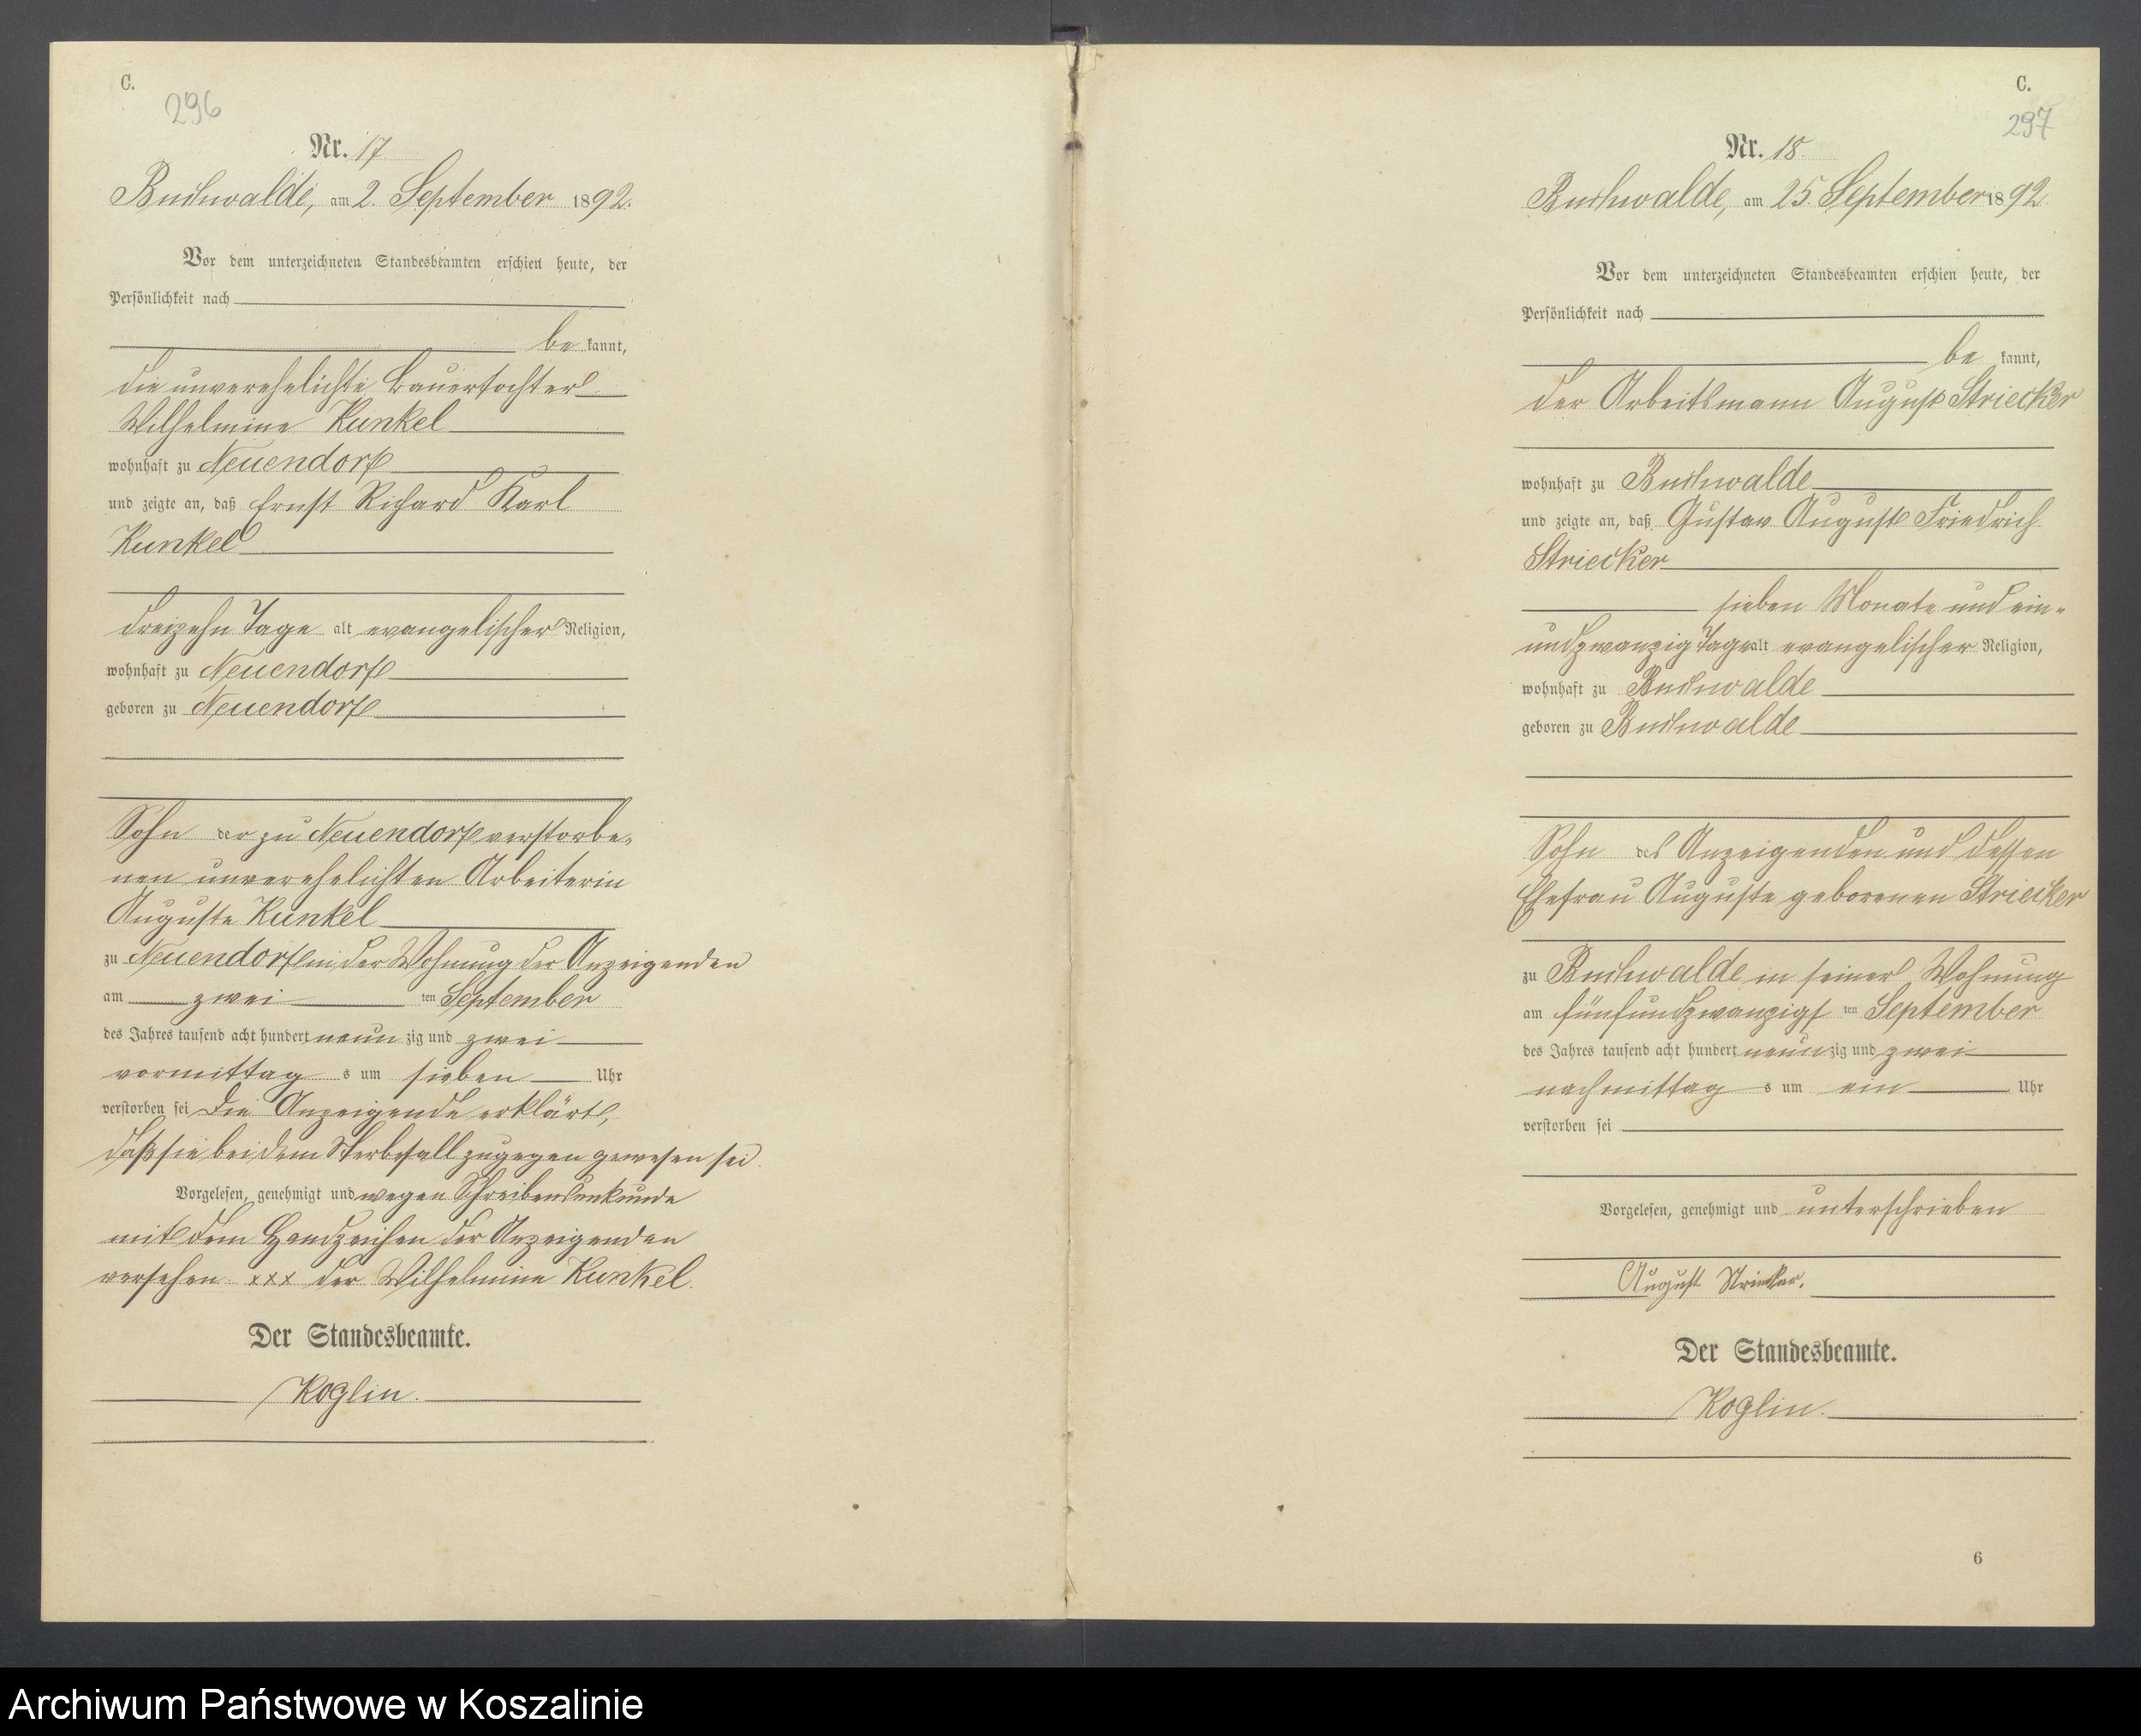 C.
296
Nr. 17
Buchwalde, am 2. September 1892.
Vor dem unterzeichneten Standesbeamten erschien heute, der
Persönlichkeit nach
be kannt,
die unverehelichte Bauertochter
Wilhelmine Kunkel
wohnhaft zu Neuendorf
und zeigte an, daß Ernst Richard Karl
Kunkel
dreizehn Tage alt evangelischer Religion,
wohnhaft zu Neuendorf
geboren zu Neuendorf
Sohn der zu Neuendorf verstorbe-
nen unverehelichten Arbeiterin
Auguste Kunkel
zu Neuendorf in der Wohnung der Anzeigenden
am zwei ten September
des Jahres tausend acht hundert neun zig und zwei
vormittag s um sieben Uhr
verstorben sei Die Anzeigende erklärt,
daß sie bei dem Sterbefall zugegen gewesen sei.
Vorgelesen, genehmigt und wegen Schreibensunkunde
mit dem Handzeichen der Anzeigenden
versehen xxx der Wilhelmine Kunkel.
Der Standesbeamte.
Koglin.
C.
297
Nr. 18.
Buchwalde, am 25. September 1892
Vor dem unterzeichneten Standesbeamten erschien heute, der
Persönlichkeit nach
be kannt,
der Arbeitsmann August Striecker
wohnhaft zu Buchwalde
und zeigte an, daß Gustav August Friedrich
Striecker
sieben Monate und ein-
undzwanzig Tage alt evangelischer Religion,
wohnhaft zu Buchwalde
geboren zu Buchwalde
Sohn des Anzeigenden und dessen
Ehefrau Auguste geborenen Striecker
zu Buchwalde in seiner Wohnung
am fünfundzwanzigs ten September
des Jahres tausend acht hundert neun zig und zwei
nachmittag s um ein Uhr
verstorben sei
Vorgelesen, genehmigt und unterschrieben
August Striecker.
Der Standesbeamte.
Koglin.
6
Archiwum Państwowe w Koszalinie